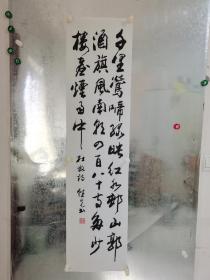 千里鶯啼绿映红水邨山郭
酒旗風南朝四百八十寺多少
楼臺煙雨中 杜牧詩